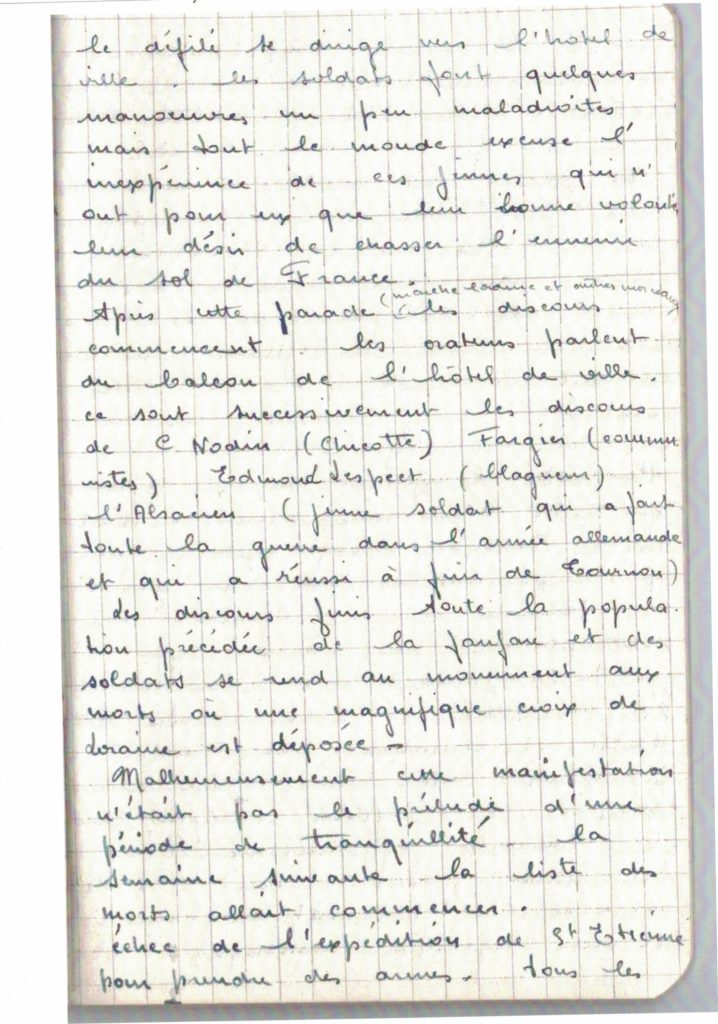 le défilé se dirige vers l'hôtel de
ville. les soldats font quelques
manoeuvres un peu maladroites
mais tout le monde excuse l'
inexpérience de ces jeunes qui n'
ont pour eux que leur bonne volonté
leur désir de chasser l'ennemi
du sol de France.
(marche lorraine et autres morceaux)
Après cette parade les discours
commencent. les orateurs parlent
du balcon de l'hôtel de ville.
ce sont successivement les discours
de C Nodin (Chicotte) Fargier (commu
nistes) Edmond Lespect (blagueur)
l'Alsacien (jeune soldat qui a fait
toute la guerre dans l'armée allemande
et qui a réussi à fuir de Tournon)
Les discours finis toute la popula
tion précédée de la fanfare et des
soldats se rend au monument aux
morts où une magnifique croix de
Loraine est déposée -
Malheureusement cette manifestation
n'était pas le prélude d'une
période de tranquillité. la
semaine suivante la liste des
morts allait commencer.
échec de l'expédition de St Etienne
pour prendre des armes. tous les